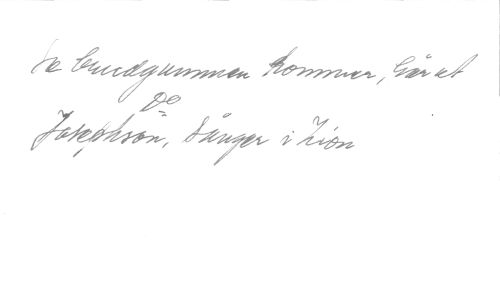 Se brudgummen kommer, Går ut
Do
Josephson, Sånger i Zion